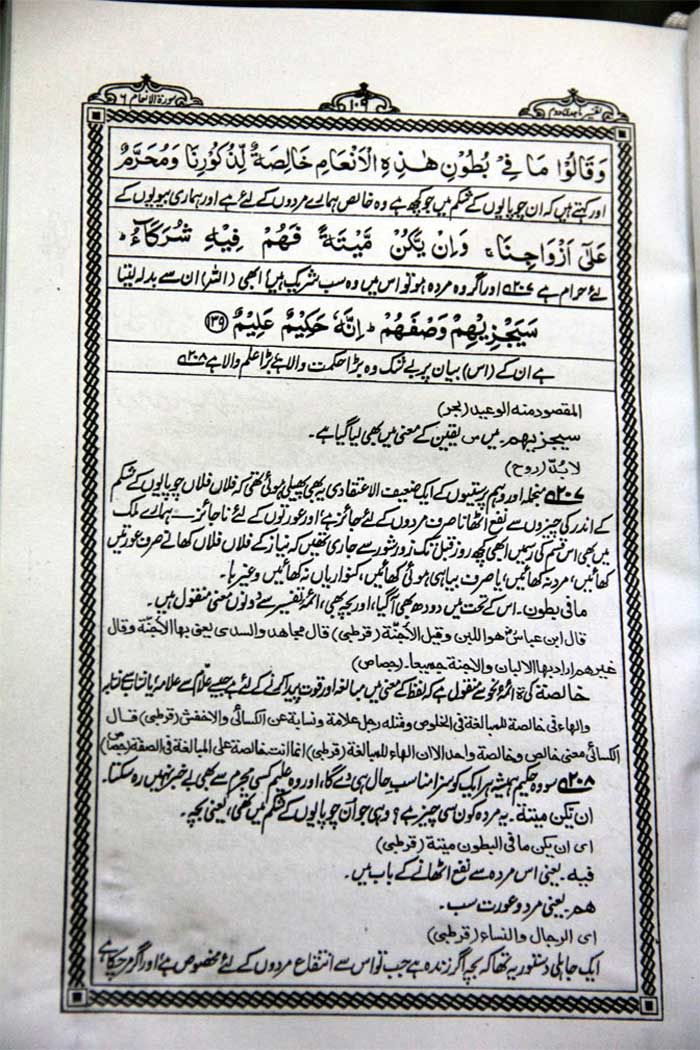 سورۃ الانعام ٦
١٠٩
تفسیر ماجدی دوم
وَقَالُوْا مَا فِیْ بُطُوْنِ هٰذِهِ الْاَنْعَامِ خَالِصَةٌ لِّذُكُوْرِنَا وَمُحَرَّمٌ
اور کہتے ہیں کہ ان چوپایوں کے شکم میں جو کچھ ہے وہ خالص ہمارے مردوں کے لئے ہے اور ہماری بیویوں کے
عَلٰۤی اَزْوَاجِنَا ۚ وَاِنْ یَّكُنْ مَّیْتَةً فَهُمْ فِیْهِ شُرَكَآءُ ؕ
لئے حرام ہے ۲۰۷؎ اور اگر وہ مردہ ہو تو اس میں وہ سب شریک ہیں، ابھی (اللہ) ان سے بدلہ لیتا
سَیَجْزِیْهِمْ وَصْفَهُمْ ؕ اِنَّهٗ حَكِیْمٌ عَلِیْمٌ ﴿۱۳۹﴾
ہے ان کے (اس) بیان پر بے شک وہ بڑا حکمت والا ہے بڑا علم والا ہے ۲۰۸؎
المقصود منه الوعید (بحر)
سیجزیهم۔ میں س یقین کے معنی میں بھی لیا گیا ہے۔
لا بدّ (روح)
۲۰۷؎ منجملہ اور وہم پرستیوں کے ایک ضعیف الاعتقادی یہ بھی پھیلی ہوئی تھی کہ فلاں فلاں چوپایوں کے شکم
کے اندر کی چیزوں سے نفع اٹھانا صرف مردوں کے لئے جائز ہے اور عورتوں کے لئے ناجائز۔ ہمارے ملک
میں بھی اس قسم کی رسمیں ابھی کچھ روز قبل تک زور شور سے جاری تھیں کہ نیاز کے فلاں فلاں کھانے صرف عورتیں
کھائیں، مرد نہ کھائیں، یا صرف بیاہی ہوئی کھائیں، کنواریاں نہ کھائیں وغیرہا۔
ما فی بطون۔ اس کے تحت میں دودھ بھی آ گیا، اور بچہ بھی، ائمۂ تفسیر سے دونوں معنی منقول ہیں۔
قال ابن عباسؓ هو اللبن وقیل الاجنّة (قرطبی) قال مجاهد والسدی یعنی بها الاجنّة وقال
غیرهم اراد بها الالبان والاجنة جمیعا۔ (جصاص)
خالصة کی ة ائمۂ نحو سے منقول ہے کہ لفظ کے معنی میں مبالغہ اور قوت پیدا کرنے کے لئے ہے جیسے علّام سے علامہ یا نسّاب سے نسّابہ
والهاء فی خالصة للمبالغة فی الخلوص ومثله رجل علامة ونسابة عن الکسائی والاخفش (قرطبی) قال
الکسائی معنی خالص وخالصة واحد الا ان الهاء للمبالغة (قرطبی) انما انث خالصة علی المبالغة فی الصفة (جصاص)
۲۰۸؎ سو وہ حکیم ہمیشہ ہر ایک کو سزا مناسب حال ہی دے گا، اور وہ علیم کسی مجرم سے بھی بے خبر نہیں رہ سکتا۔
ان یکن میتة۔ یہ مردہ کون سی چیز ہے؟ وہی جو ان چوپایوں کے شکم میں تھی، یعنی بچہ۔
ای ان یکن ما فی البطون میتة (قرطبی)
فیه۔ یعنی اس مردہ سے نفع اٹھانے کے باب میں۔
هم۔ یعنی مرد و عورت سب۔
ای الرجال والنساء (قرطبی)
ایک جاہلی دستور یہ تھا کہ بچہ اگر زندہ ہے جب تو اس سے انتفاع مردوں کے لئے مخصوص ہے، اور اگر مر چکا ہے